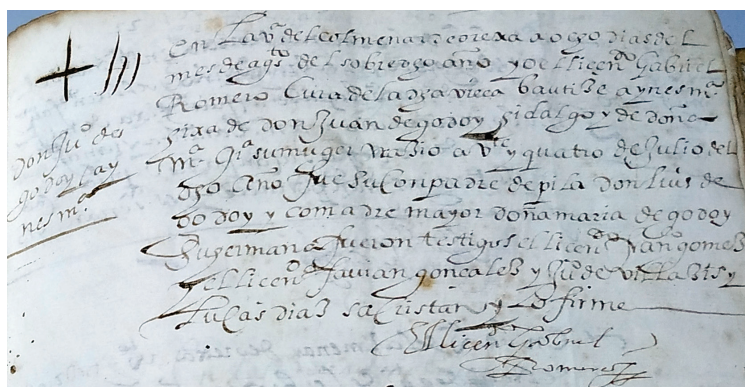 + 
En la vª del colmenar de orexa a ocho dias del
mes de agto del sobredho año yo el licendo Gabriel
Romero Cura de la dha vieca bautize a ynes mª
hixa de don Juan de godoy hidalgo y de doña
Mª Gª su muger nascio a Vte y quatro de Julio del
dho año fue su Conpadre de pila don luis de
Godoy y comadre mayor doña maria de godoy
Su hermana fueron testigos el licendo Juan gomez
y el licendo favian gonçales y Juº de villa y
Lucas diaz sacristan y lo firme
El licendo Gabriel
Romero
Don Juº de
godoy
nes mª